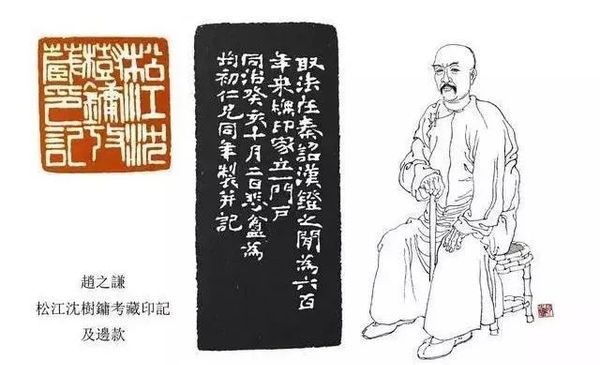 松江沈
樹鏞攷
藏印記
取法在秦詔漢鐙之閒為六百
年來橅印家立一門戶
同治癸亥十月二日悲盦為
均初仁兄同年製并記
趙之謙
松江沈樹鏞考藏印記
及邊款